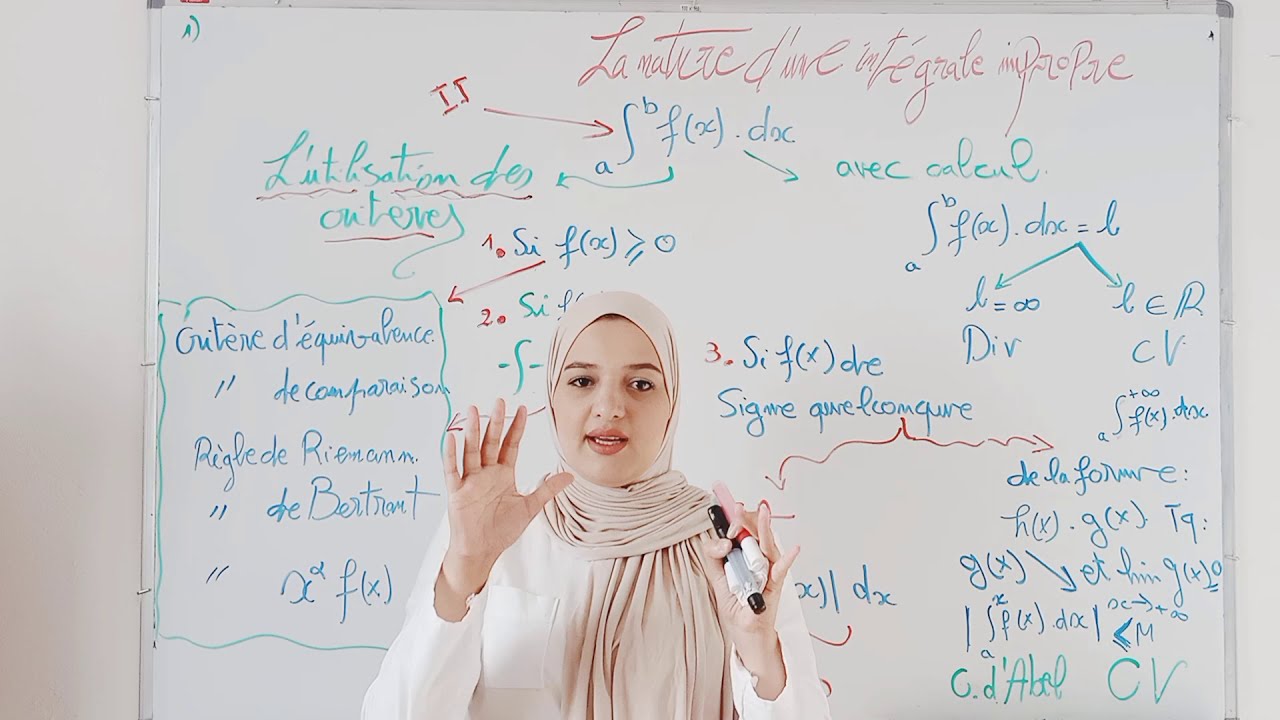 1)
La nature d'une intégrale impropre
II
∫_a^b f(x).dx
L'utilisation des
critères
avec calcul.
∫_a^b f(x).dx = l
l=∞
l∈ℝ
Div
CV
1. Si f(x)⩾0
2. Si f(
-∫-
Critère d'équivalence.
" de comparaison
Règle de Riemann.
" de Bertrant
" x^α f(x)
3. Si f(x) de
Signe quelconque
x)| dx
∫_a^{+∞} f(x).dx
de la forme:
h(x).g(x). Tq:
g(x) ↘ et lim g(x)=0
x→+∞
|∫_a^x f(x).dx| ⩽ M
C.d'Abel CV